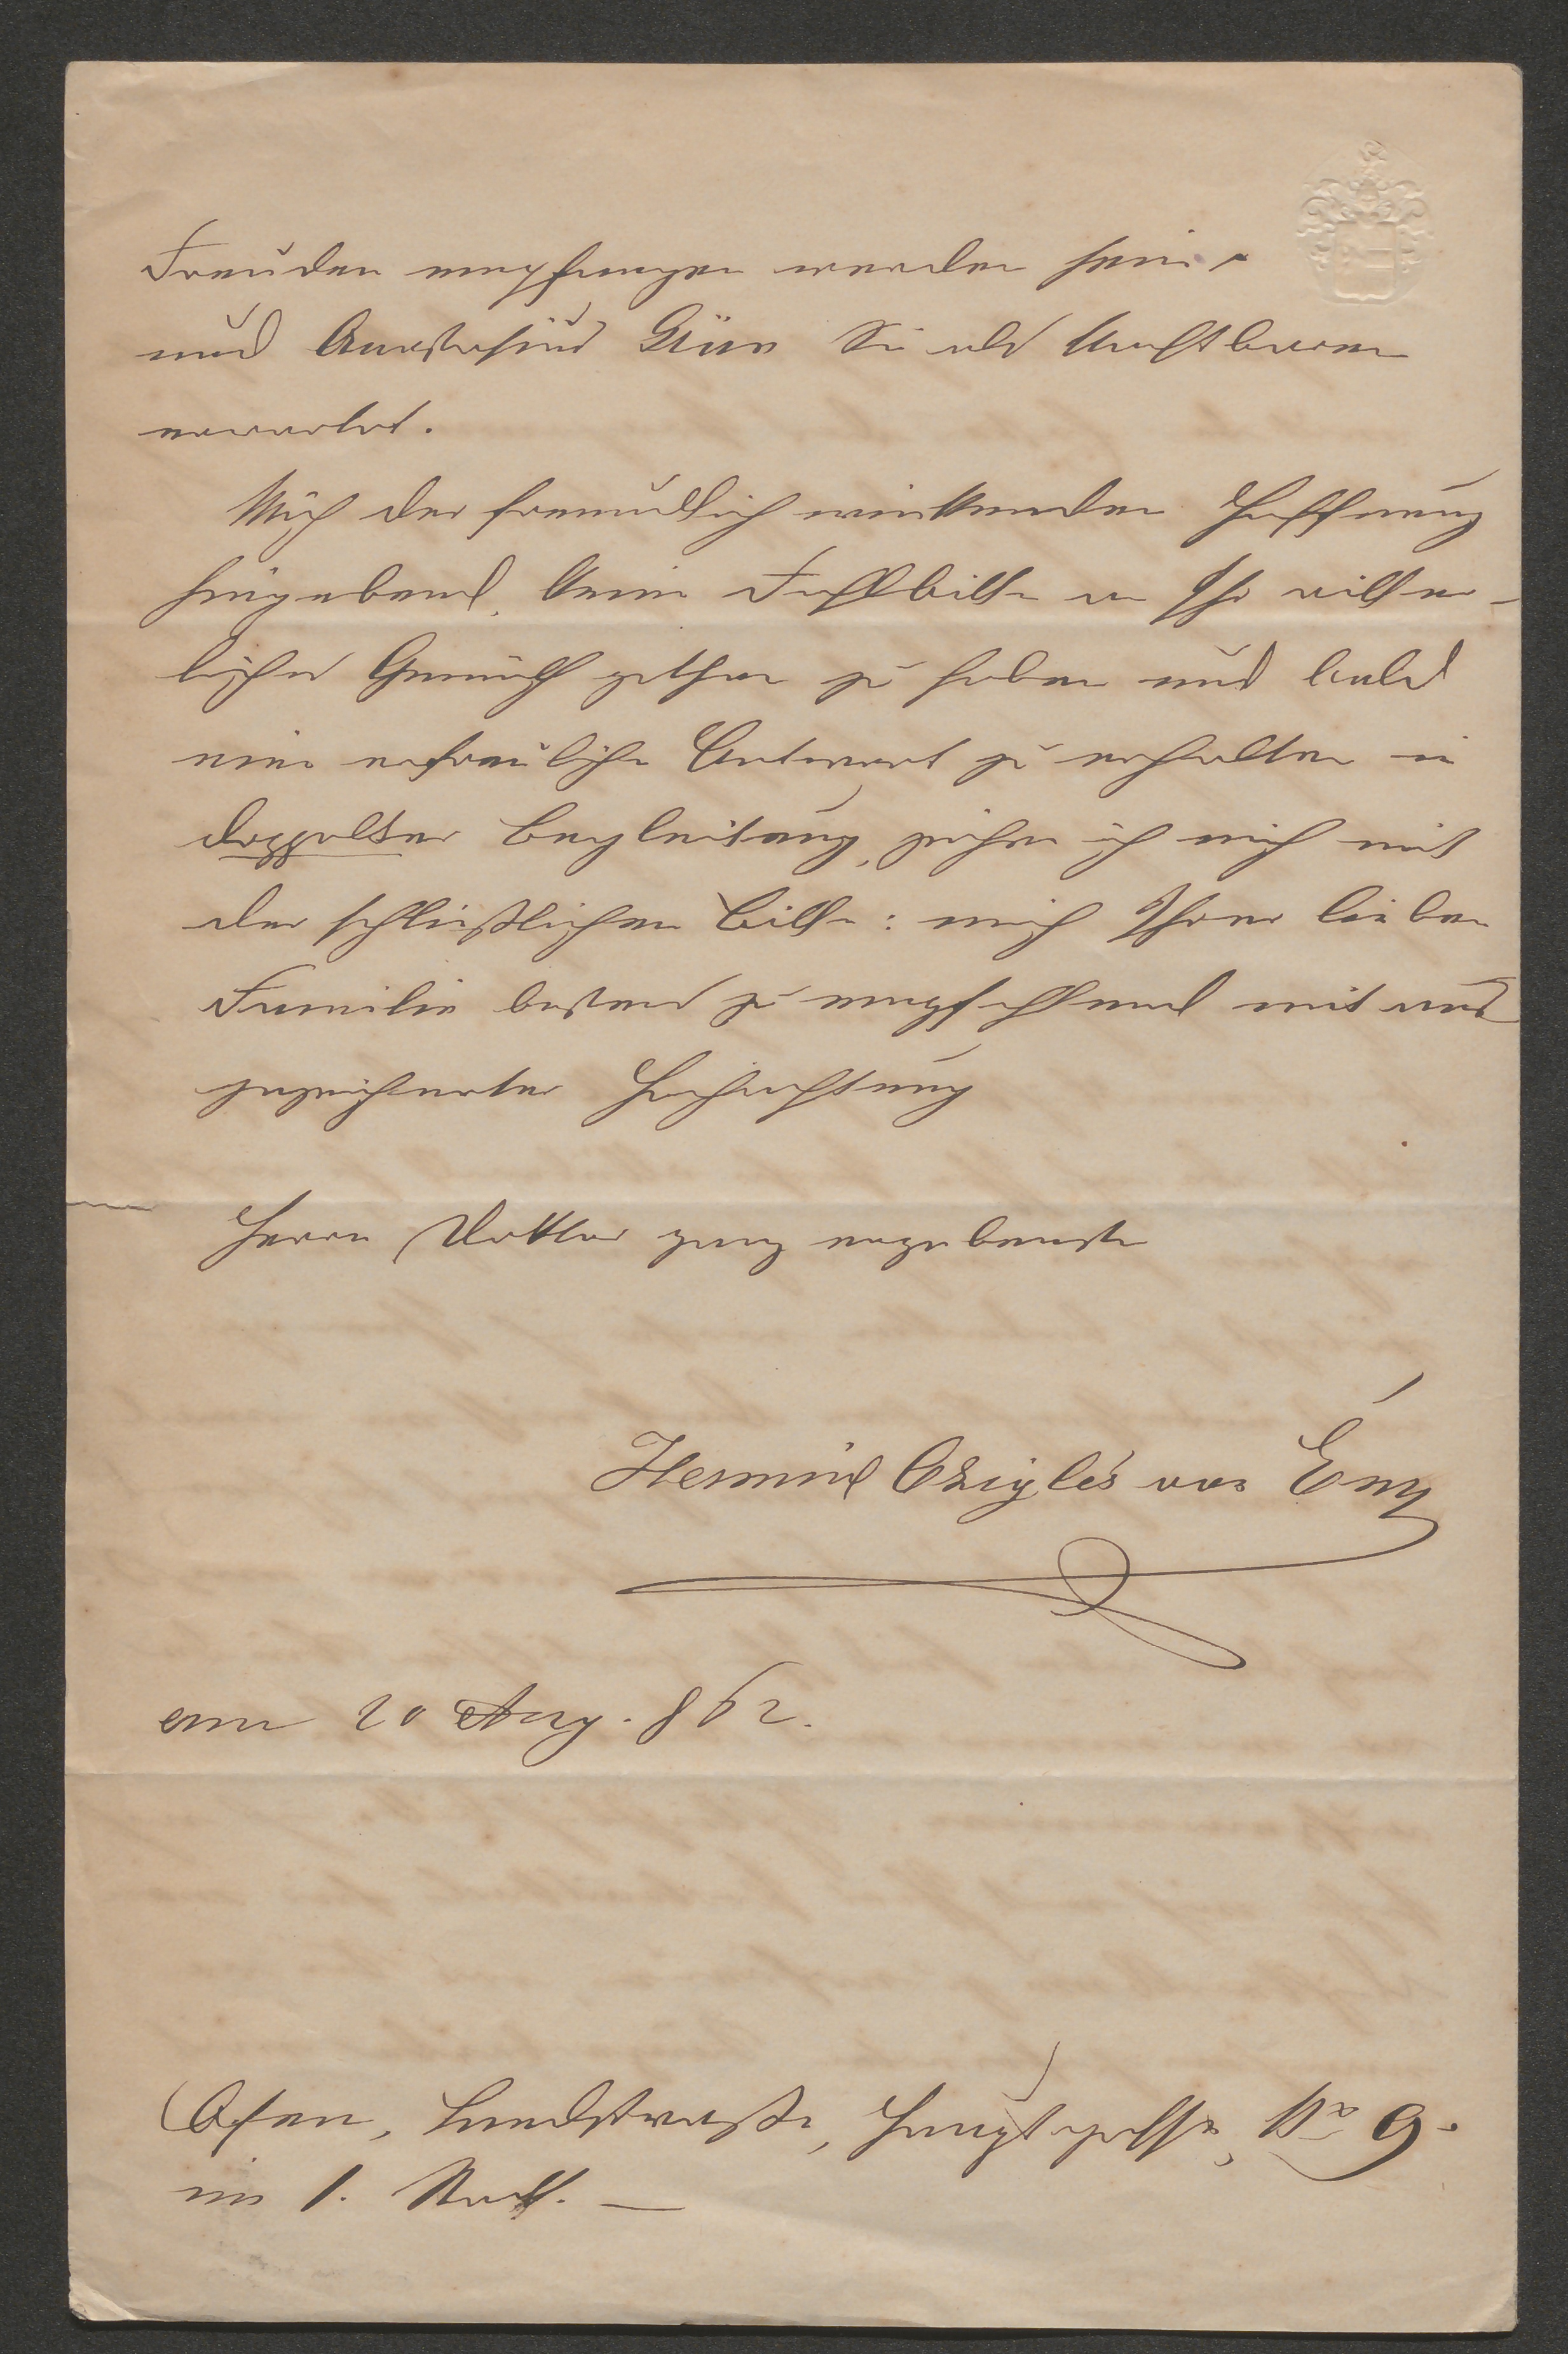 Freuden empfangen werden sein
und Anastasius Grün Sie als Nachbarn
erwartet.
Mich der freundlich winkenden Hoffnung
hingebend, keine Fehlbitte an Ihr ritter-
liches Gemüth gethan zu haben und bald
eine erfreuliche Antwort zu erhalten in
doppelter Begleitung, zeichne ich mich mit
der schließlichen Bitte: mich Ihrer lieben
Familie bestens zu empfehlend mit aus
gezeichneter Hochachtung
Herrn Doktor ganz ergebenste
Hermine Czigler von Eny
am 20 Aug. 862.
Ofen, Landstrasse, Hauptgasse, No 9.
im 1. Stock. —